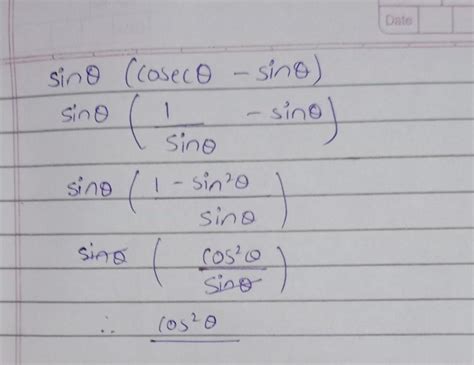 Date
sinθ (cosecθ - sinθ)
sinθ (1/sinθ - sinθ)
sinθ (1 - sin²θ/sinθ)
sinθ (cos²θ/sinθ)
∴ cos²θ